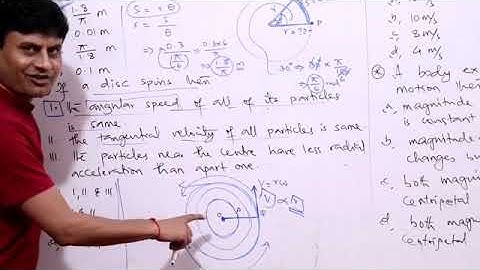 1.8/π m
0.01 m
π/1.8 m
0.1 m
S = rθ
r = S/θ
⇒ 0.3/(π/6) = 0.3×6/π
⇒ 1.8/π m
P
30° ⇒ 30 × π/180
⇒ (π/6)
b. 10 m/s
c. 8 m/s
d. 4 m/s
If a disc spins then
I. the angular speed of all of its particles
is same.
II the tangential velocity of all particles is same
III. the particles near the centre have less radial
acceleration than apart one.
I, II & III
V = rω
V ∝ r
A body
motion then
a. magnitude
is constant
b. magnitude
changes
c. both
centripetal
d. both
centripetal